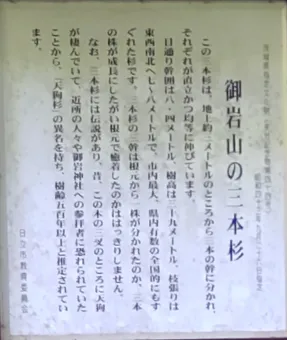 茨城県指定文化財（天然記念物第四十四号）
御岩山の三本杉
この三本杉は、地上約三メートルのところから三本の幹に分かれ、
それぞれが直立かつ均等に伸びています。
目通り幹囲は八・四メートル、樹高は三十九メートル、枝張りは
東西南北へ七～八メートルで、市内最大、県内有数の全国的にもす
ぐれた杉です。この三幹は根元から一株が分かれたのか、三本
の株が成長にしたがい根元で癒着したのかははっきりしません。
なお、三本杉には伝説があり、昔、この木の三叉のところに天狗
が棲んでいて、近所の人々や御岩神社への参拝者に恐れられていた
ことから、「天狗杉」の異名を持ち、樹齢五百年以上と推定されてい
ます。
日立市教育委員会